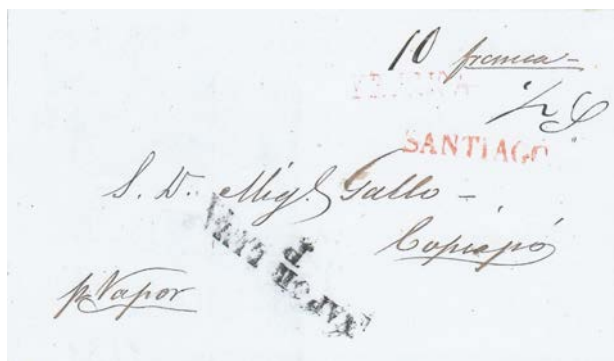 10 franca
FRANCA
SANTIAGO
S. D. Migl Gallo -
Copiapó
pr Vapor
VAPOR
P